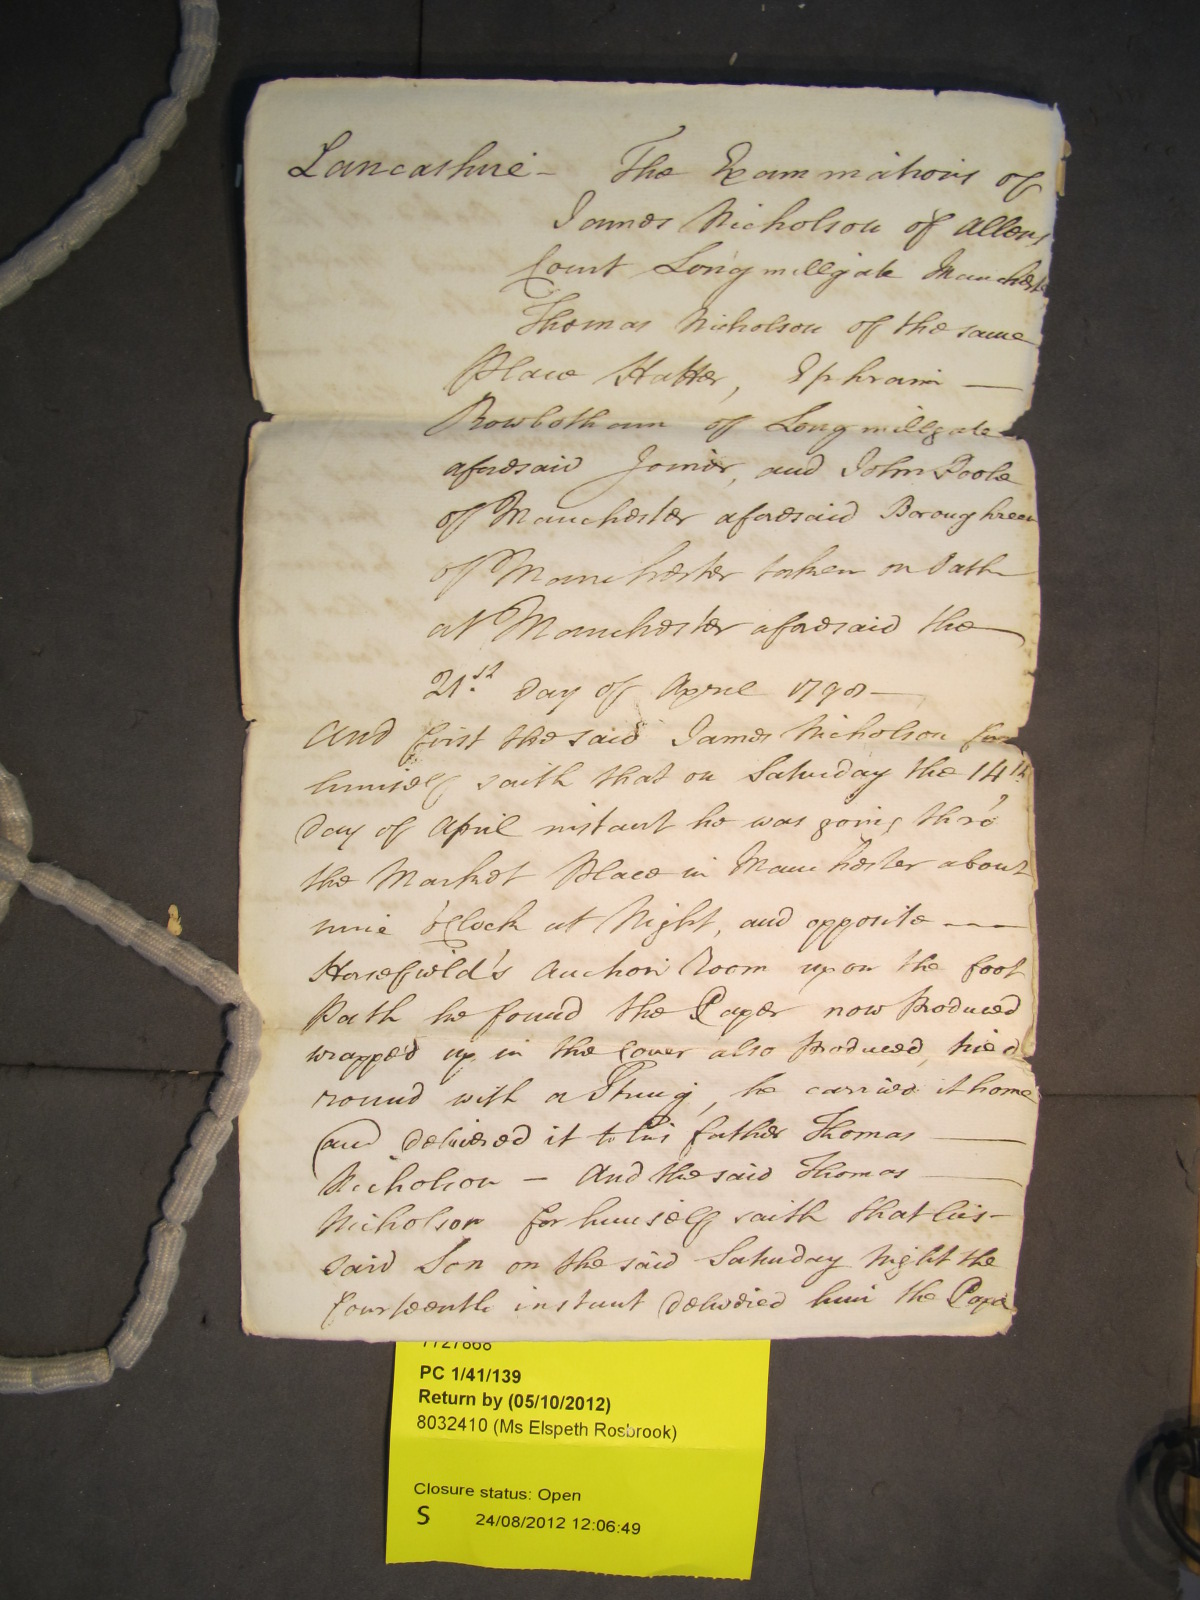 Lancashire – The Examinations of
James Nicholson of Allens
Court Longmillgate Manchester
Thomas Nicholson of the same
Place Hatter, Ephraim —
Rowbotham of Longmillgate
aforesaid Joiner, and John Poole
of Manchester aforesaid Boroughreeve
of Manchester taken on Oath
at Manchester aforesaid the
21st day of April 1798 —
And first the said James Nicholson for
himself saith that on Saturday the 14th
day of April instant he was going thro'
the Market Place in Manchester about
nine o'Clock at Night, and opposite ———
Horsefield's Auction Room upon the foot
Path he found the Paper now produced
wrapped up in the Cover also produced, tied
round with a String, he carried it home
and delivered it to his father Thomas —
Nicholson – And the said Thomas —
Nicholson for himself saith that his –
said Son on the said Saturday Night the
fourteenth instant delivered him the Paper
PC 1/41/139
Return by (05/10/2012)
8032410 (Ms Elspeth Rosbrook)
Closure status: Open
S 24/08/2012 12:06:49